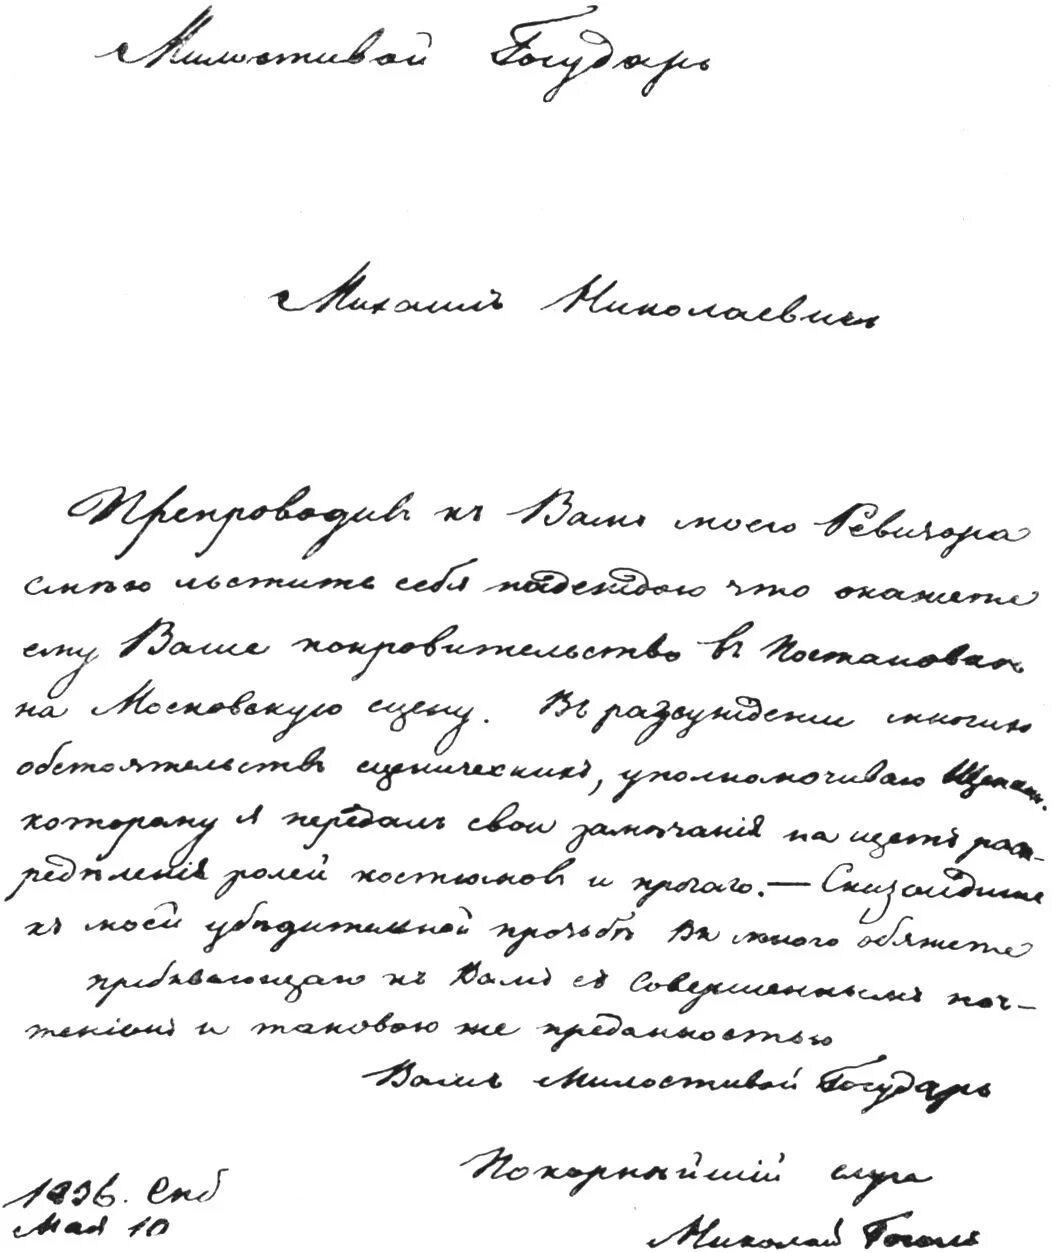 Милостивой Государь
Михаилъ Николаевичь
Препроводивъ къ Вамъ моего Ревизора
смѣю льстить себя надеждою что окажете
ему Ваше покровительство въ постановкѣ
на Московскую сцену. Въ разсуждении многихъ
обстоятельствъ сценическихъ, уполномочиваю Щепкин.
которому я передалъ свои замѣчанія на щетъ рас-
редѣленія ролей костюмовъ и прочаго. — Снизойдите
къ моей убѣдительной прочьбѣ Вы много обяжете
пребывающаго къ Вамъ съ совершеннымъ поч-
теніемъ и таковою же преданностью
Вамъ Милостивой Государь
Покорнѣйшій слуга
Николай Гоголь
1836. Спб
Мая 10